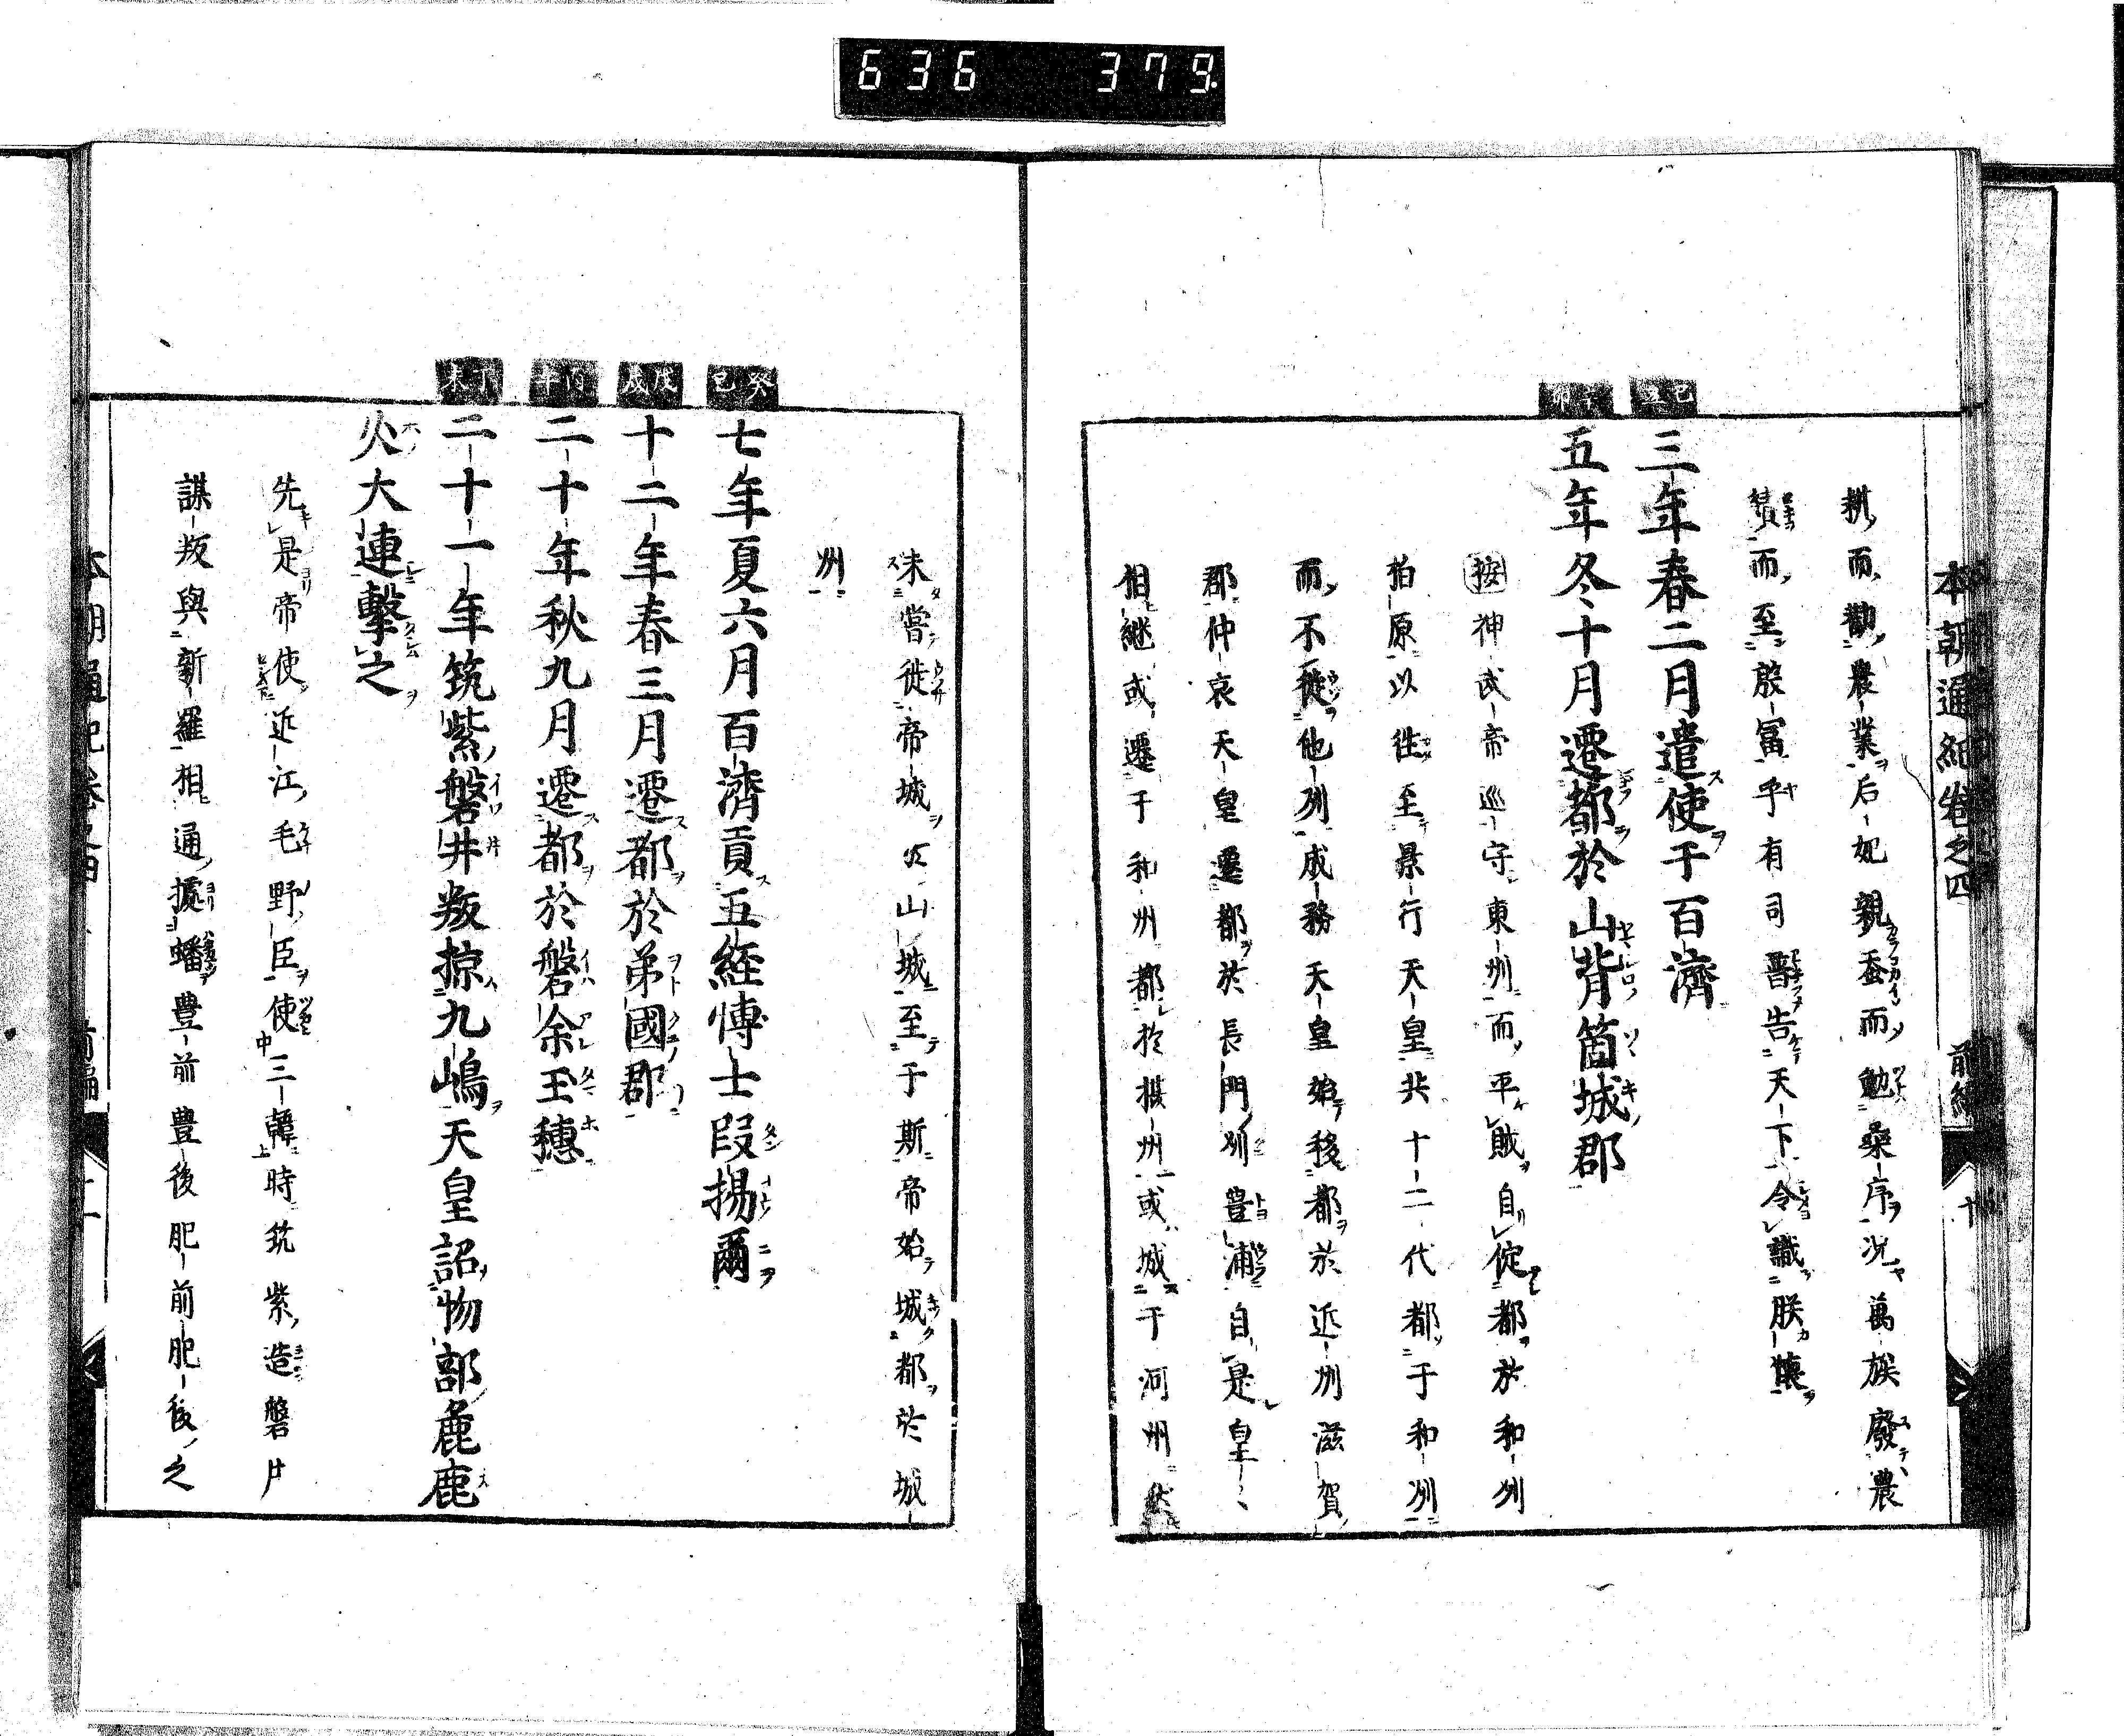 636 379
本朝通紀卷之四 前編 十
耕而勸農業后妃親蚕而勉桑序况萬族廢農
績而至殷冨乎有司普告天下令識朕懐
己丑
三年春二月遣使于百濟
辛卯
五年冬十月遷都於山背箇城郡
按神武帝巡守東州而平賊自㝎都於和州
柏原以徃至景行天皇共十二代都于和州
而不徙他州成務天皇始移都於近州滋賀
郡仲哀天皇遷都於長門州豊浦自是皇
相継或遷于和州都於摂州或城于河州然
未嘗徙帝城於山城至于斯帝始城都於城
州
癸巳
七年夏六月百濟貢五経博士段揚爾
戊戌
十二年春三月遷都於弟國郡
丙午
二十年秋九月遷都於磐余玉穗
丁未
二十一年筑紫磐井叛掠九嶋天皇詔物部麁鹿
火大連擊之
先是帝使近江毛野臣使三韓時筑紫造磐井
謀叛與新羅相通據蟠豊前豊後肥前肥後之
本朝通紀卷之四 前編 十一